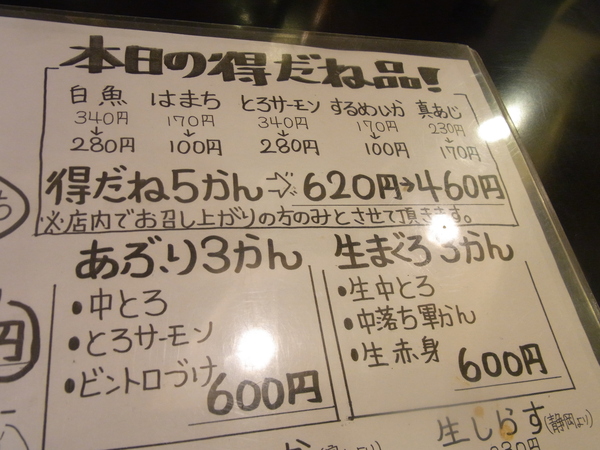 本日の得だね品!
白魚 はまち とろサーモン するめいか 真あじ
340円 170円 340円 170円 230円
↓ ↓ ↓ ↓ ↓
280円 100円 280円 100円 170円
得だね5かん⇨620円→460円
※店内でお召し上がりの方のみとさせて頂きます。
あぶり3かん
・中とろ
・とろサーモン
・ビントロづけ
600円
生まぐろ3かん
・生中とろ
・中落ち軍かん
・生赤身
600円
円
生しらす(静岡より)